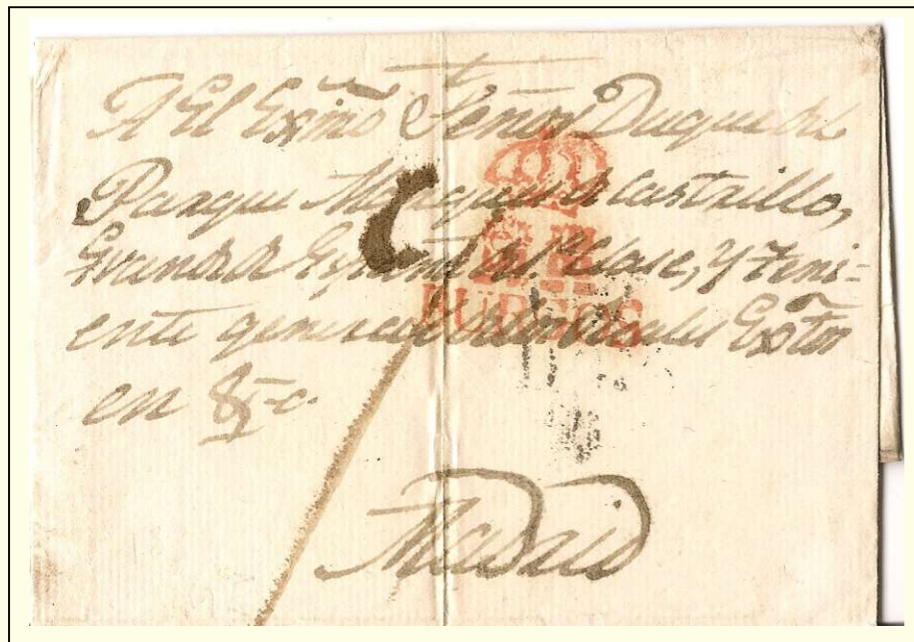 A El Exmõ Señor Duque del
Parque Marques de Castrillo,
Grande de España de 1.ª clase, y Teni=
ente general Exto
en &c.
BURGOS
Madrid